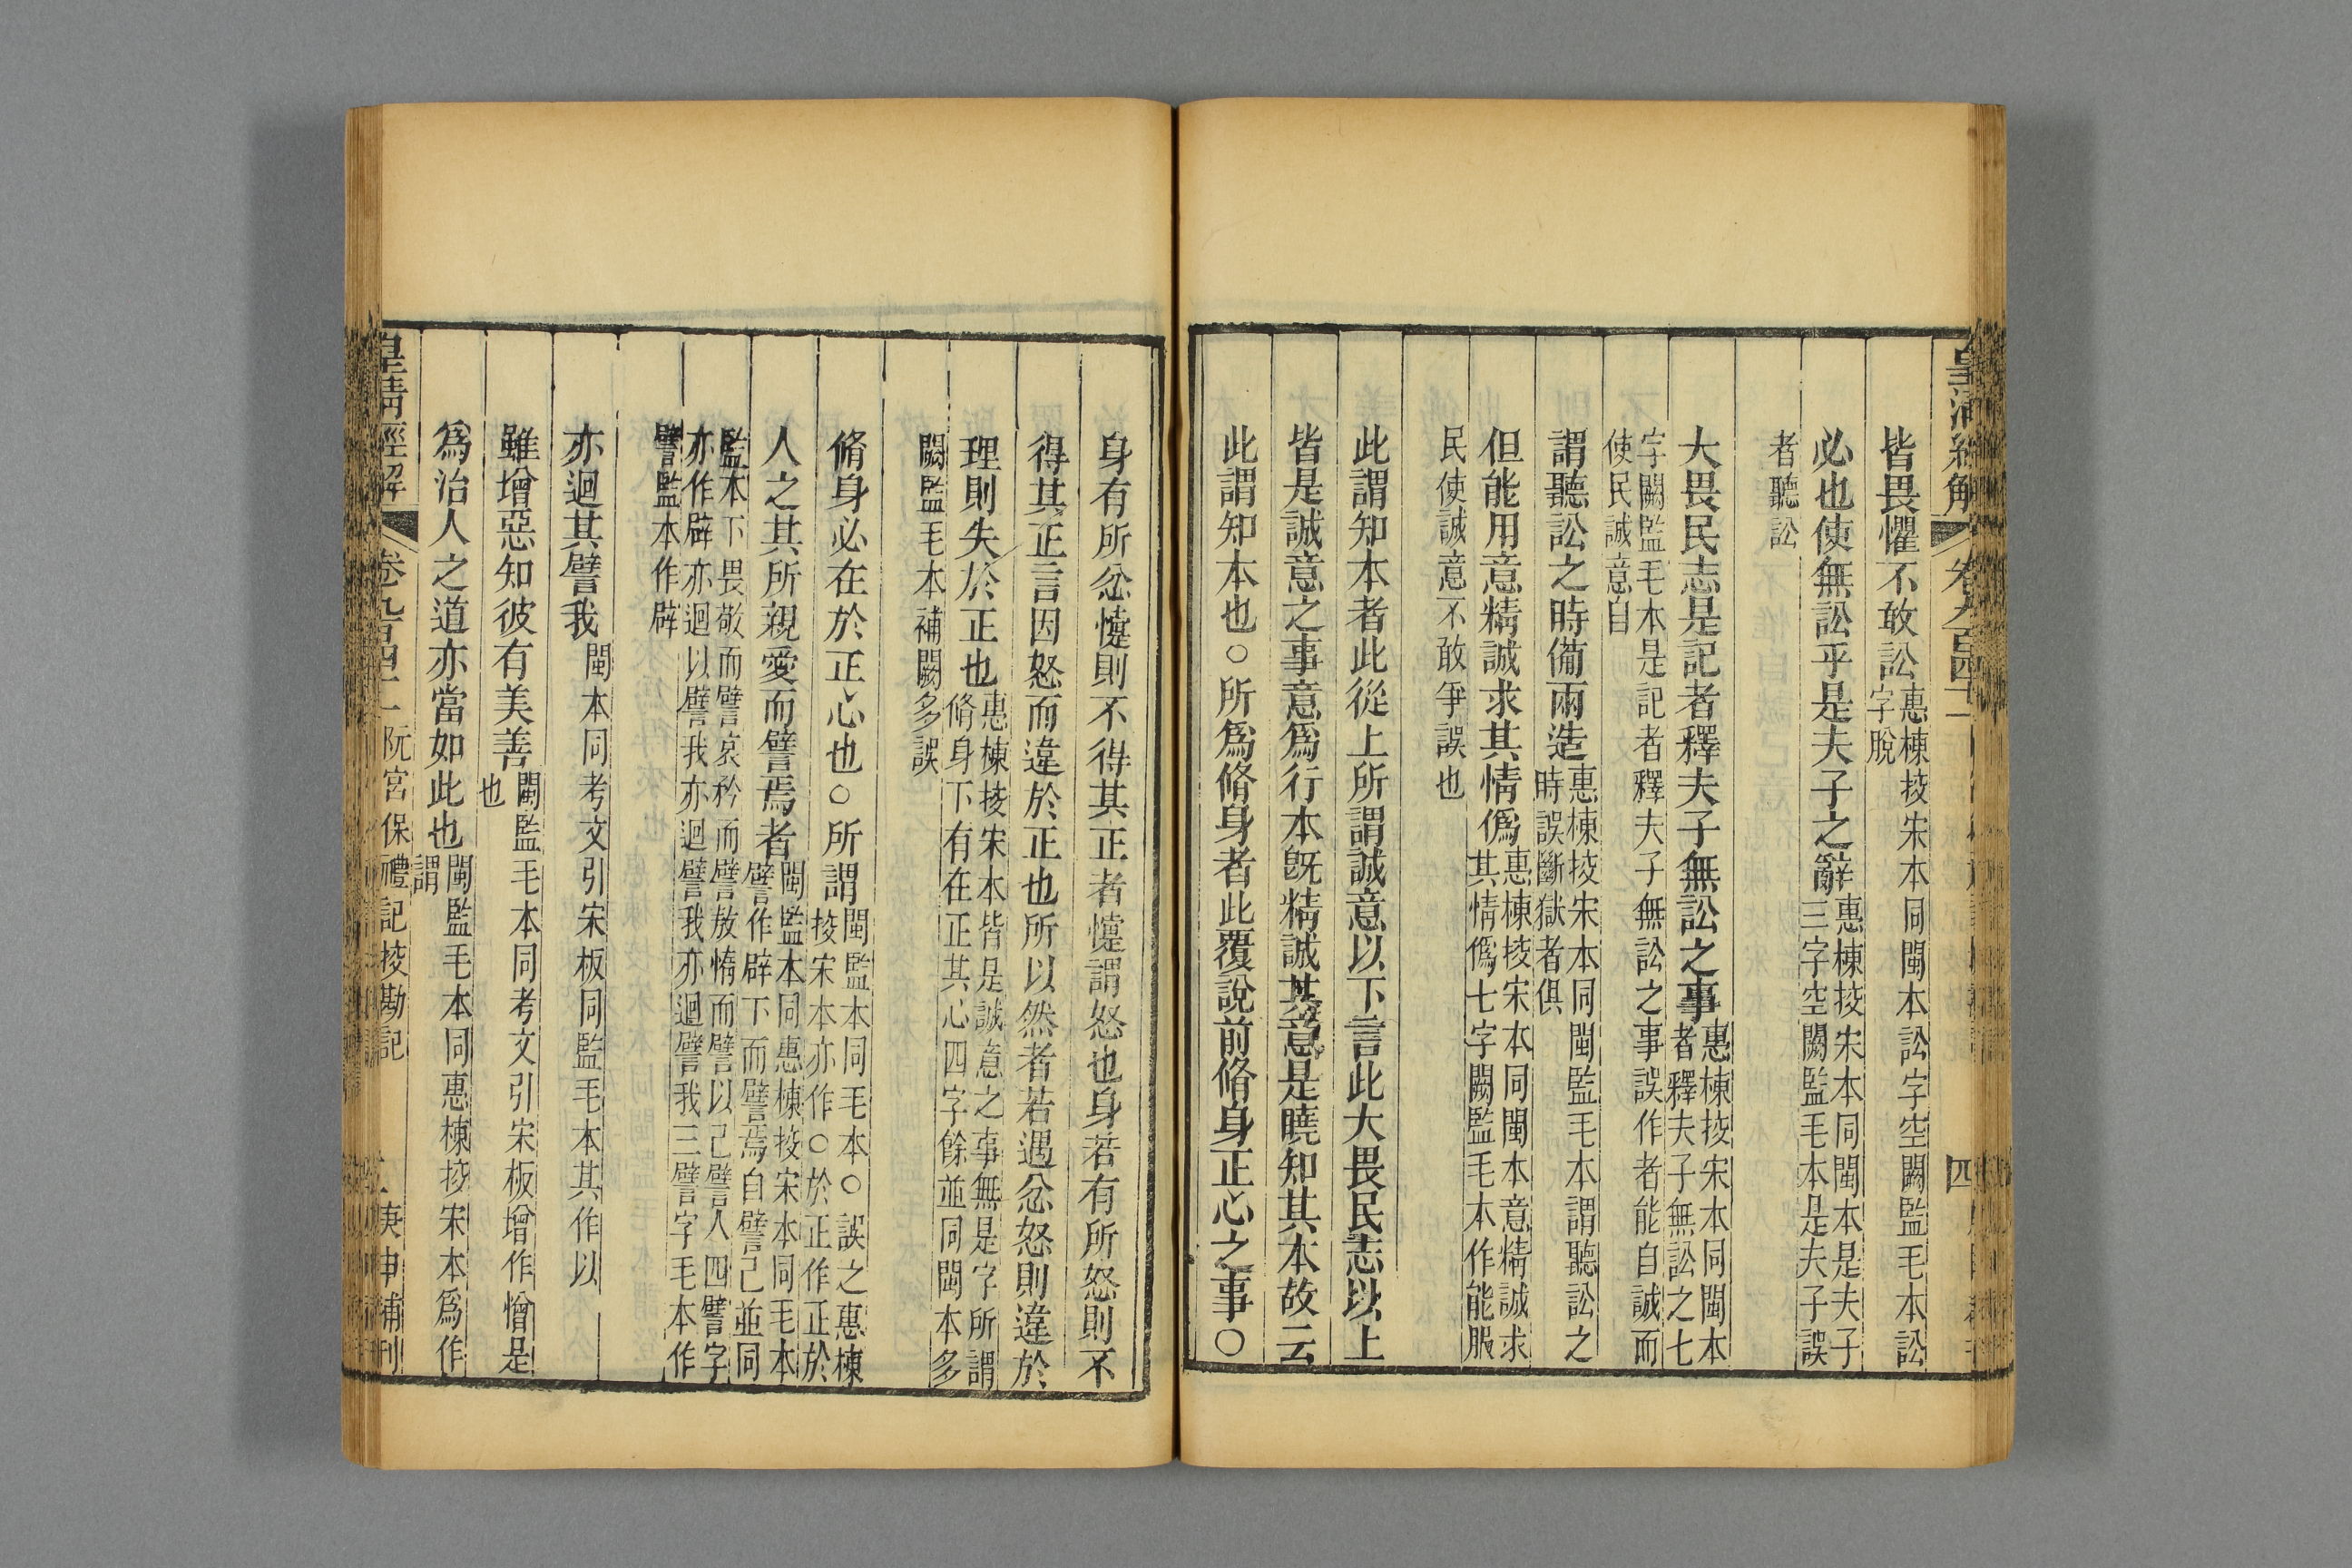 皆畏懼不敢訟惠棟挍宋本同閩本訟字空闕監毛本訟字脫
必也使無訟乎是夫子之辭惠棟挍宋本同閩本是夫子三字空闕監毛本是夫子誤
者聽訟
大畏民志是記者釋夫子無訟之事惠棟挍宋本同閩本者釋夫子無訟之七
字闕監毛本是記者釋夫子無訟之事誤作者能自誠而使民誠意自
謂聽訟之時備兩造惠棟挍宋本同閩監毛本謂聽訟之時誤斷獄者俱
但能用意精誠求其情僞惠棟挍宋本同閩本意精誠求其情僞七字闕監毛本作能服
民使誠意不敢爭誤也
此謂知本者此從上所謂誠意以下言此大畏民志以上
皆是誠意之事意爲行本旣精誠其意是曉知其本故云
此謂知本也○所爲脩身者此覆說前脩身正心之事○
身有所忿懥則不得其正者懥謂怒也身若有所怒則不
得其正言因怒而違於正也所以然者若遇忿怒則違於
理則失於正也惠棟挍宋本皆是誠意之事無是字所謂脩身下有在正其心四字餘並同閩本多
闕監毛本補闕多誤
脩身必在於正心也○所謂閩監本同毛本○誤之惠棟挍宋本亦作○於正作正於
人之其所親愛而譬焉者閩監本同惠棟挍宋本同毛本譬作辟下而譬焉自譬己並同
監本下畏敬而譬哀矜而譬敖惰而譬以己譬人四譬字亦作辟亦迴以譬我亦迴譬我亦迴譬我三譬字毛本作
譬監本作辟
亦迴其譬我閩本同考文引宋板同監毛本其作以
雖增惡知彼有美善閩監毛本同考文引宋板增作憎是也
爲治人之道亦當如此也閩監毛本同惠棟挍宋本爲作謂
皇清經解 卷九百四二 阮宮保禮記挍勘記 庚申補刊